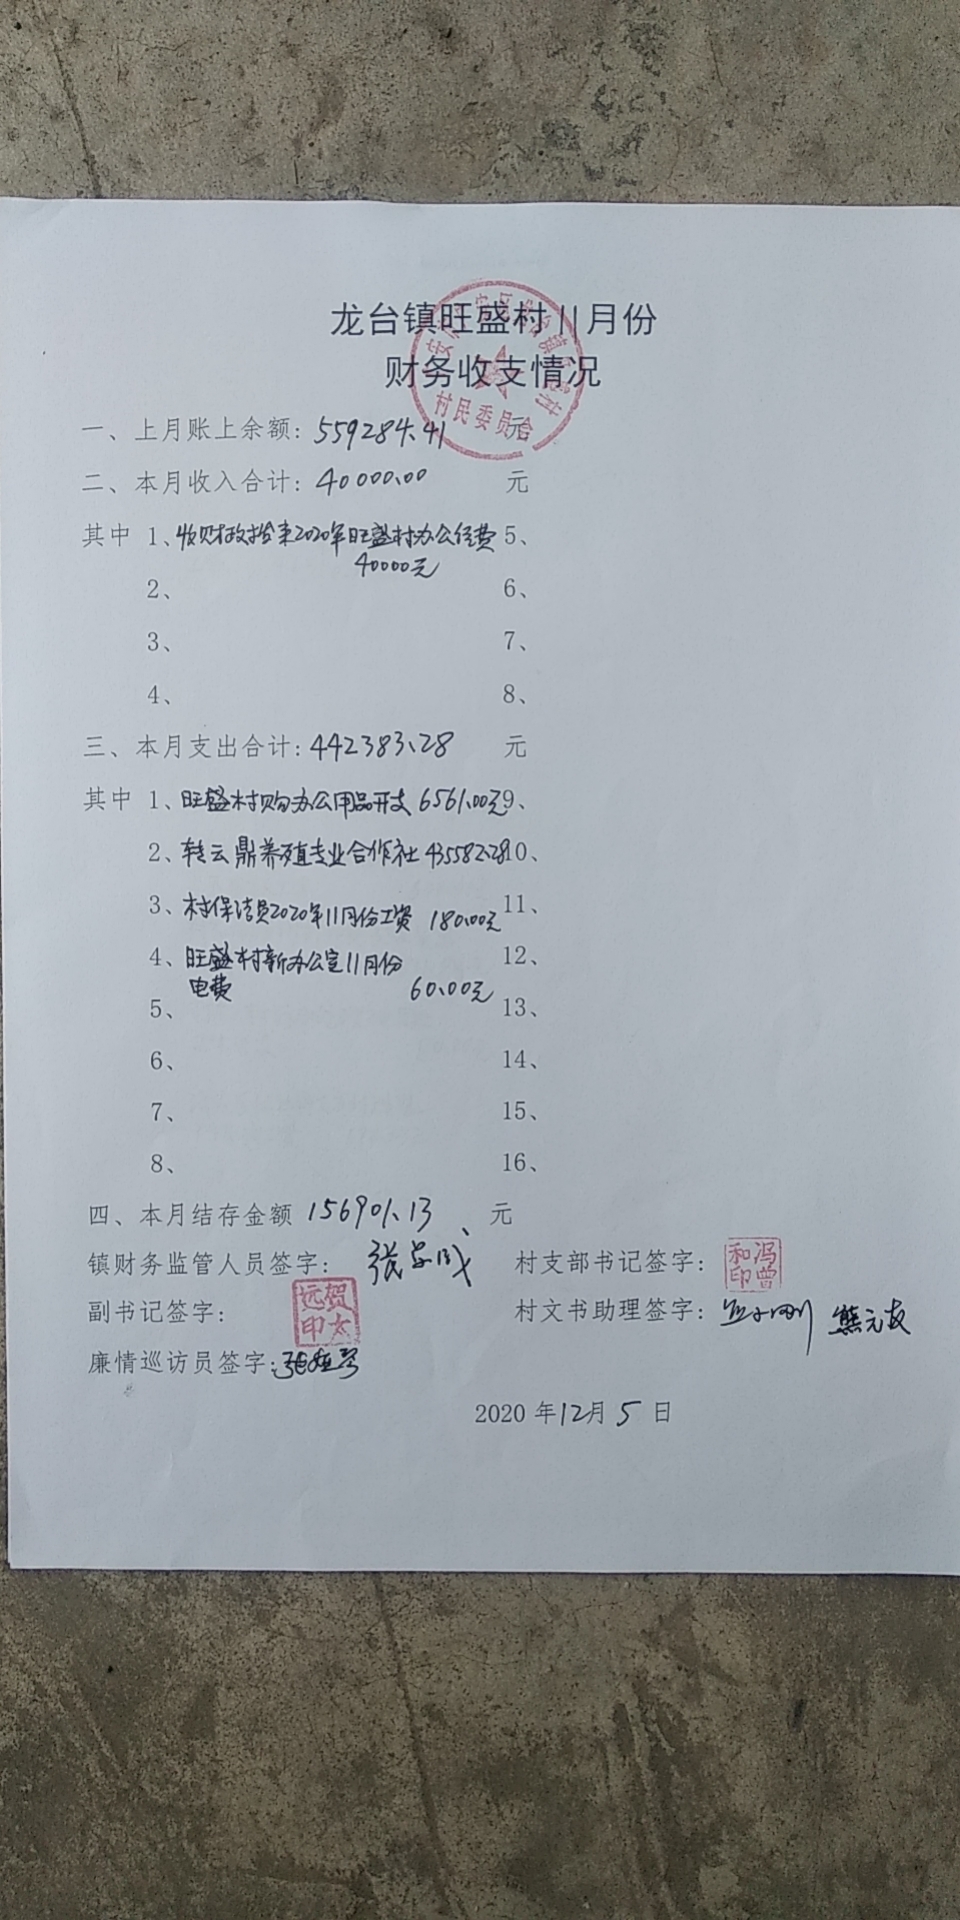 龙台镇旺盛村11月份
财务收支情况
村民委员会
一、上月账上余额: 559284.41 元
二、本月收入合计: 40000.00 元
其中 1、收财政拾来2020年旺盛村办公经费 5、
40000元
2、 6、
3、 7、
4、 8、
三、本月支出合计: 442383.28 元
其中 1、旺盛村购办公用品开支 6561.00元 9、
2、转云鼎养殖专业合作社 435582.28 10、
3、村保洁员2020年11月份工资 180.00元 11、
4、旺盛村新办公室11月份 12、
电费 60.00元
5、 13、
6、 14、
7、 15、
8、 16、
四、本月结存金额 156901.13 元
镇财务监管人员签字: 村支部书记签字: 冯曾和印
副书记签字: 贺太远印 村文书助理签字: 熊元友
廉情巡访员签字:
2020 年12月 5 日